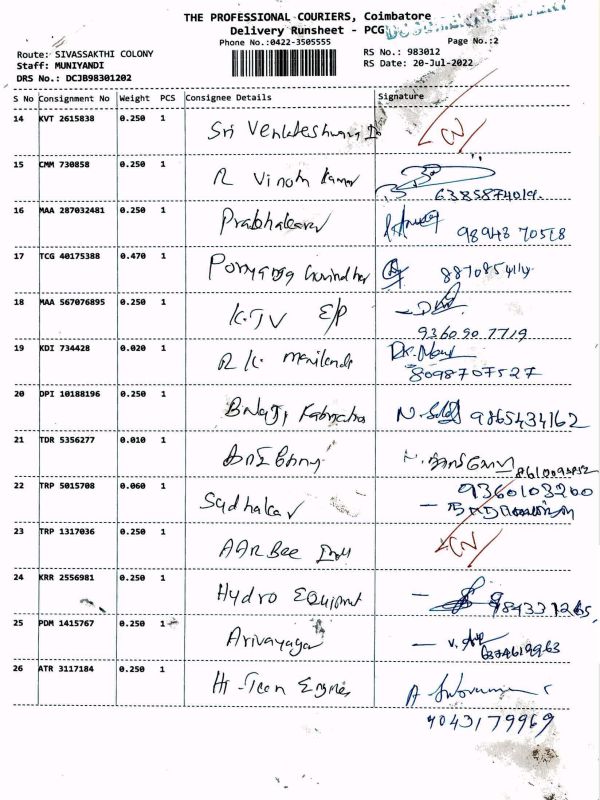 THE PROFESSIONAL COURIERS, Coimbatore
Delivery Runsheet - PCG
Phone No.:0422-3505555
Page No.:2
Route: SIVASSAKTHI COLONY
RS No.: 983012
Staff: MUNIYANDI
RS Date: 20-Jul-2022
DRS No.: DCJB98301202
S No Consignment No Weight PCS Consignee Details Signature
14 KVT 2615838 0.250 1 Sri Venkateshwara
15 CMM 730858 0.250 1 R Vinoth Kumar
6385874019.
16 MAA 287032481 0.250 1 Prabhakaran
98948 70578
17 TCG 40175388 0.470 1
887085414.
18 MAA 567076895 0.250 1 K.T.V E/P
93609 07719
19 KDI 734428 0.020 1 R K. Manikanda
8098707527
20 DPI 10188196 0.250 1 Balaji Fabricator 9865434162
21 TDR 5356277 0.010 1
22 TRP 5015708 0.060 1 Sudhakar 9360103260
23 TRP 1317036 0.250 1 AAR Bee Indu
24 KRR 2556981 0.250 1 Hydro Equipment
25 PDM 1415767 0.250 1 Arivayaga
6374619963
26 ATR 3117184 0.250 1 Hi-Tech Engines
9043179969